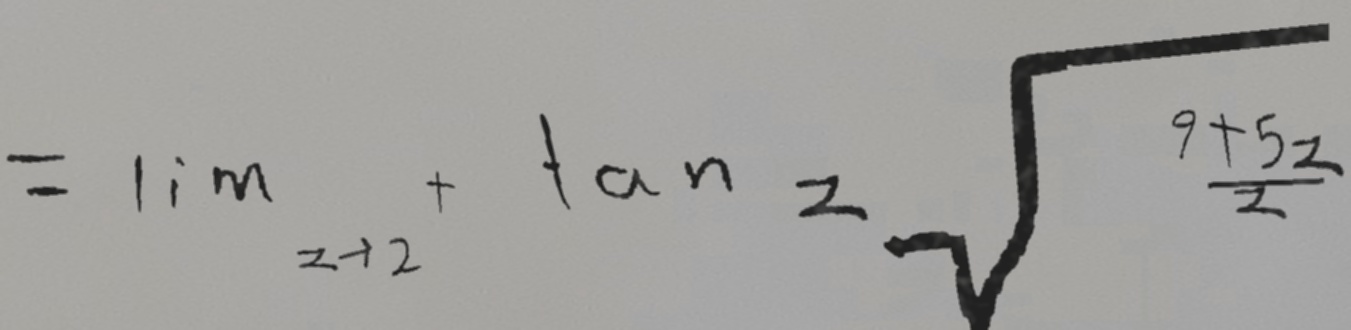 = lim z→2 + tan z √ 9+5z/z